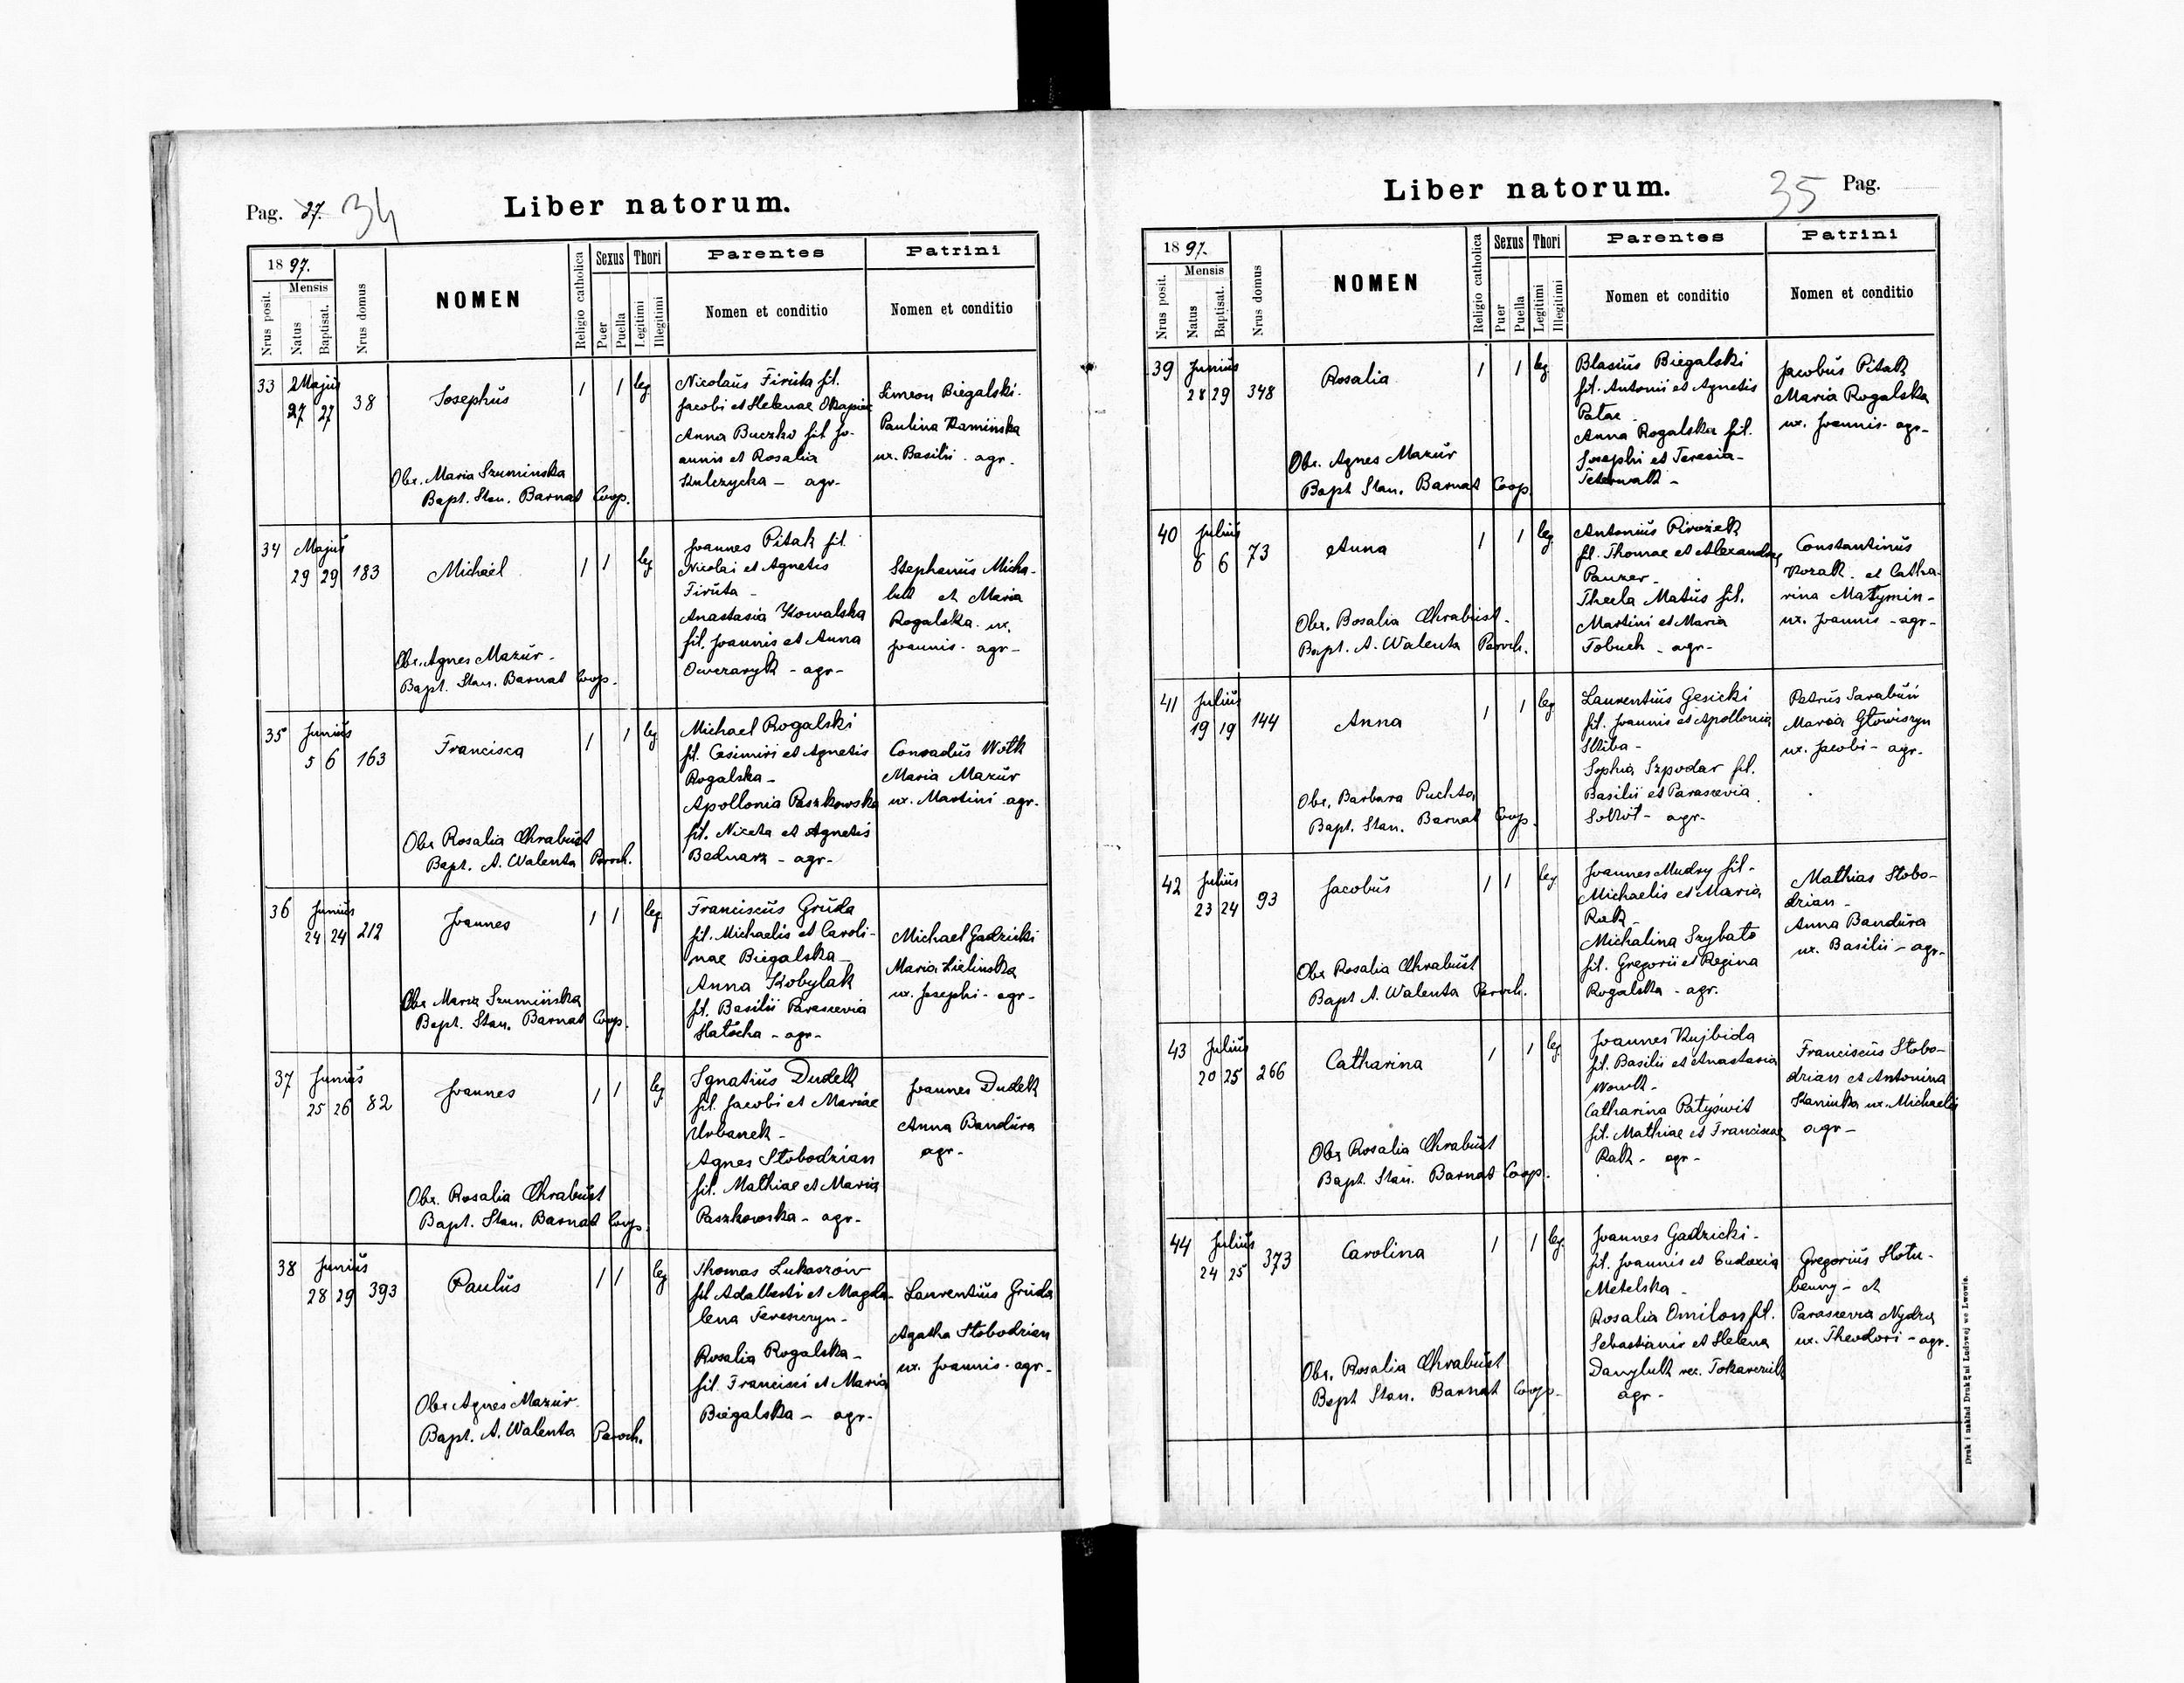 Pag. 27. 34
Liber natorum.
1897.
Mensis
Nrus posit.
Natus
Baptisat.
Nrus domus
NOMEN
Religio catholica
Sexus
Puer
Puella
Thori
Legitimi
Illegitimi
Parentes
Nomen et conditio
Patrini
Nomen et conditio
33
Majus
27 27
38
Josephus
1 1 leg
Obs. Maria Szuminska
Bapt. Stan. Barnat Coop.
Nicolaus Firuta fil.
Jacobi et Helenae
Anna Buczko fil Jo-
annis et Rosalia
Kulczycka – agr-
Simeon Biegalski.
Paulina Kaminska
ux. Basilii - agr.
34
Majus
29 29
183
Michael
1 1 leg
Obs. Agnes Mazur-
Bapt. Stan. Barnat Coop.
Joannes Pitak fil.
Nicolai et Agnetis
Firuta -
Anastasia Kowalska
fil. Joannis et Anna
Owczaryk - agr-
Stephanus Micha-
luk et Maria
Rogalska ux.
Joannis- agr-
35
Junius
5 6
163
Francisca
1 1 leg
Obs Rosalia Chrabust
Bapt. A. Walenta Paroch.
Michael Rogalski
fil. Casimiri et Agnetis
Rogalska -
Apollonia Paszkowska
fil. Niceta et Agnetis
Bednarz - agr-
Conradus Wolk
Maria Mazur
ux. Martini agr-
36
Junius
24 24
212
Joannes
1 1 leg
Obs Maria Szuminska
Bapt. Stan. Barnat Coop.
Franciscus Gruda
fil. Michaelis et Caroli-
nae Biegalska -
Anna Kobylak
fil. Basilii Parascevia
Hałocha - agr-
Michael Gadzicki
Maria Zielinska
ux. Josephi - agr-
37
Junius
25 26
82
Joannes
1 1 leg
Obs. Rosalia Chrabust
Bapt. Stan. Barnat Coop.
Ignatius Dudek
fil. Jacobi et Mariae
Urbanek -
Agnes Słobodzian
fil. Mathiae et Maria
Paszkowska - agr-
Joannes Dudek
Anna Bandura
agr-
38
Junius
28 29
393
Paulus
1 1 leg
Obs Agnes Mazur
Bapt. A. Walenta Paroch.
Thomas Lukaszów
fil Adalberti et Magda-
lena Tereszczyn-
Rosalia Rogalska -
fil. Francisci et Maria
Biegalska - agr-
Laurentius Gruda
Agatha Słobodzian
ux. Joannis - agr-
Liber natorum.
35 Pag.
1897.
Mensis
Nrus posit.
Natus
Baptisat.
Nrus domus
NOMEN
Religio catholica
Sexus
Puer
Puella
Thori
Legitimi
Illegitimi
Parentes
Nomen et conditio
Patrini
Nomen et conditio
39
Junius
28 29
348
Rosalia
1 1 leg
Obs. Agnes Mazur
Bapt Stan. Barnat Coop.
Blasius Biegalski
fil. Antonii et Agnetis
Anna Rogalska fil.
Josephi et Teresia-
Jacobus Pitak
Maria Rogalska
ux. Joannis- agr-
40
Julius
6 6
73
Anna
1 1 leg
Obs. Rosalia Chrabust-
Bapt. A. Walenta Paroch.
Antonius Pirożek
fil. Thomae et Alexandra
Panzer -
Thecla Matus fil.
Martini et Maria
Tobuch - agr-
Constantinus
Kozak et Catha-
rina Matymin-
ux. Joannis - agr-
41
Julius
19 19
144
Anna
1 1 leg
Obs. Barbara Puchta
Bapt. Stan. Barnat Coop.
Laurentius Gesicki
fil. Joannis et Apollonia
Skiba -
Sophia Szpodar fil.
Basilii et Parascevia
agr-
Petrus Sarabun
Maria Głowiszyn
ux. Jacobi - agr-
42
Julius
23 24
93
Jacobus
1 1 leg
Obs Rosalia Chrabust
Bapt A. Walenta Paroch.
Joannes Mudry fil-
Michaelis et Maria
Rak -
Michalina Szybato
fil. Gregorii et Regina
Rogalska - agr.
Mathias Słobo-
dzian -
Anna Bandura
ux. Basilii - agr-
43
Julius
20 25
266
Catharina
1 1 leg
Obs Rosalia Chrabust
Bapt. Stan. Barnat Coop.
Joannes Kujbida
fil. Basilii et Anastasia
Catharina Patyświt
fil. Mathiae et Franciscae
Rak - agr-
Franciscus Słobo-
dzian et Antonina
ux. Michaelis
agr-
44
Julius
24 25
373
Carolina
1 1 leg
Obs. Rosalia Chrabust
Bapt Stan. Barnat Coop.
Joannes Gadzicki-
fil. Joannis et Eudoxia
Metelska -
Rosalia Omilon fil.
Sebastianis et Helena
Danyluk rec. Tokarczuk
agr-
Gregorius Hołu-
bewy - et
Parascevia Nydza
ux. Theodori - agr.
Druk i nakład Drukarni Ludowej we Lwowie.